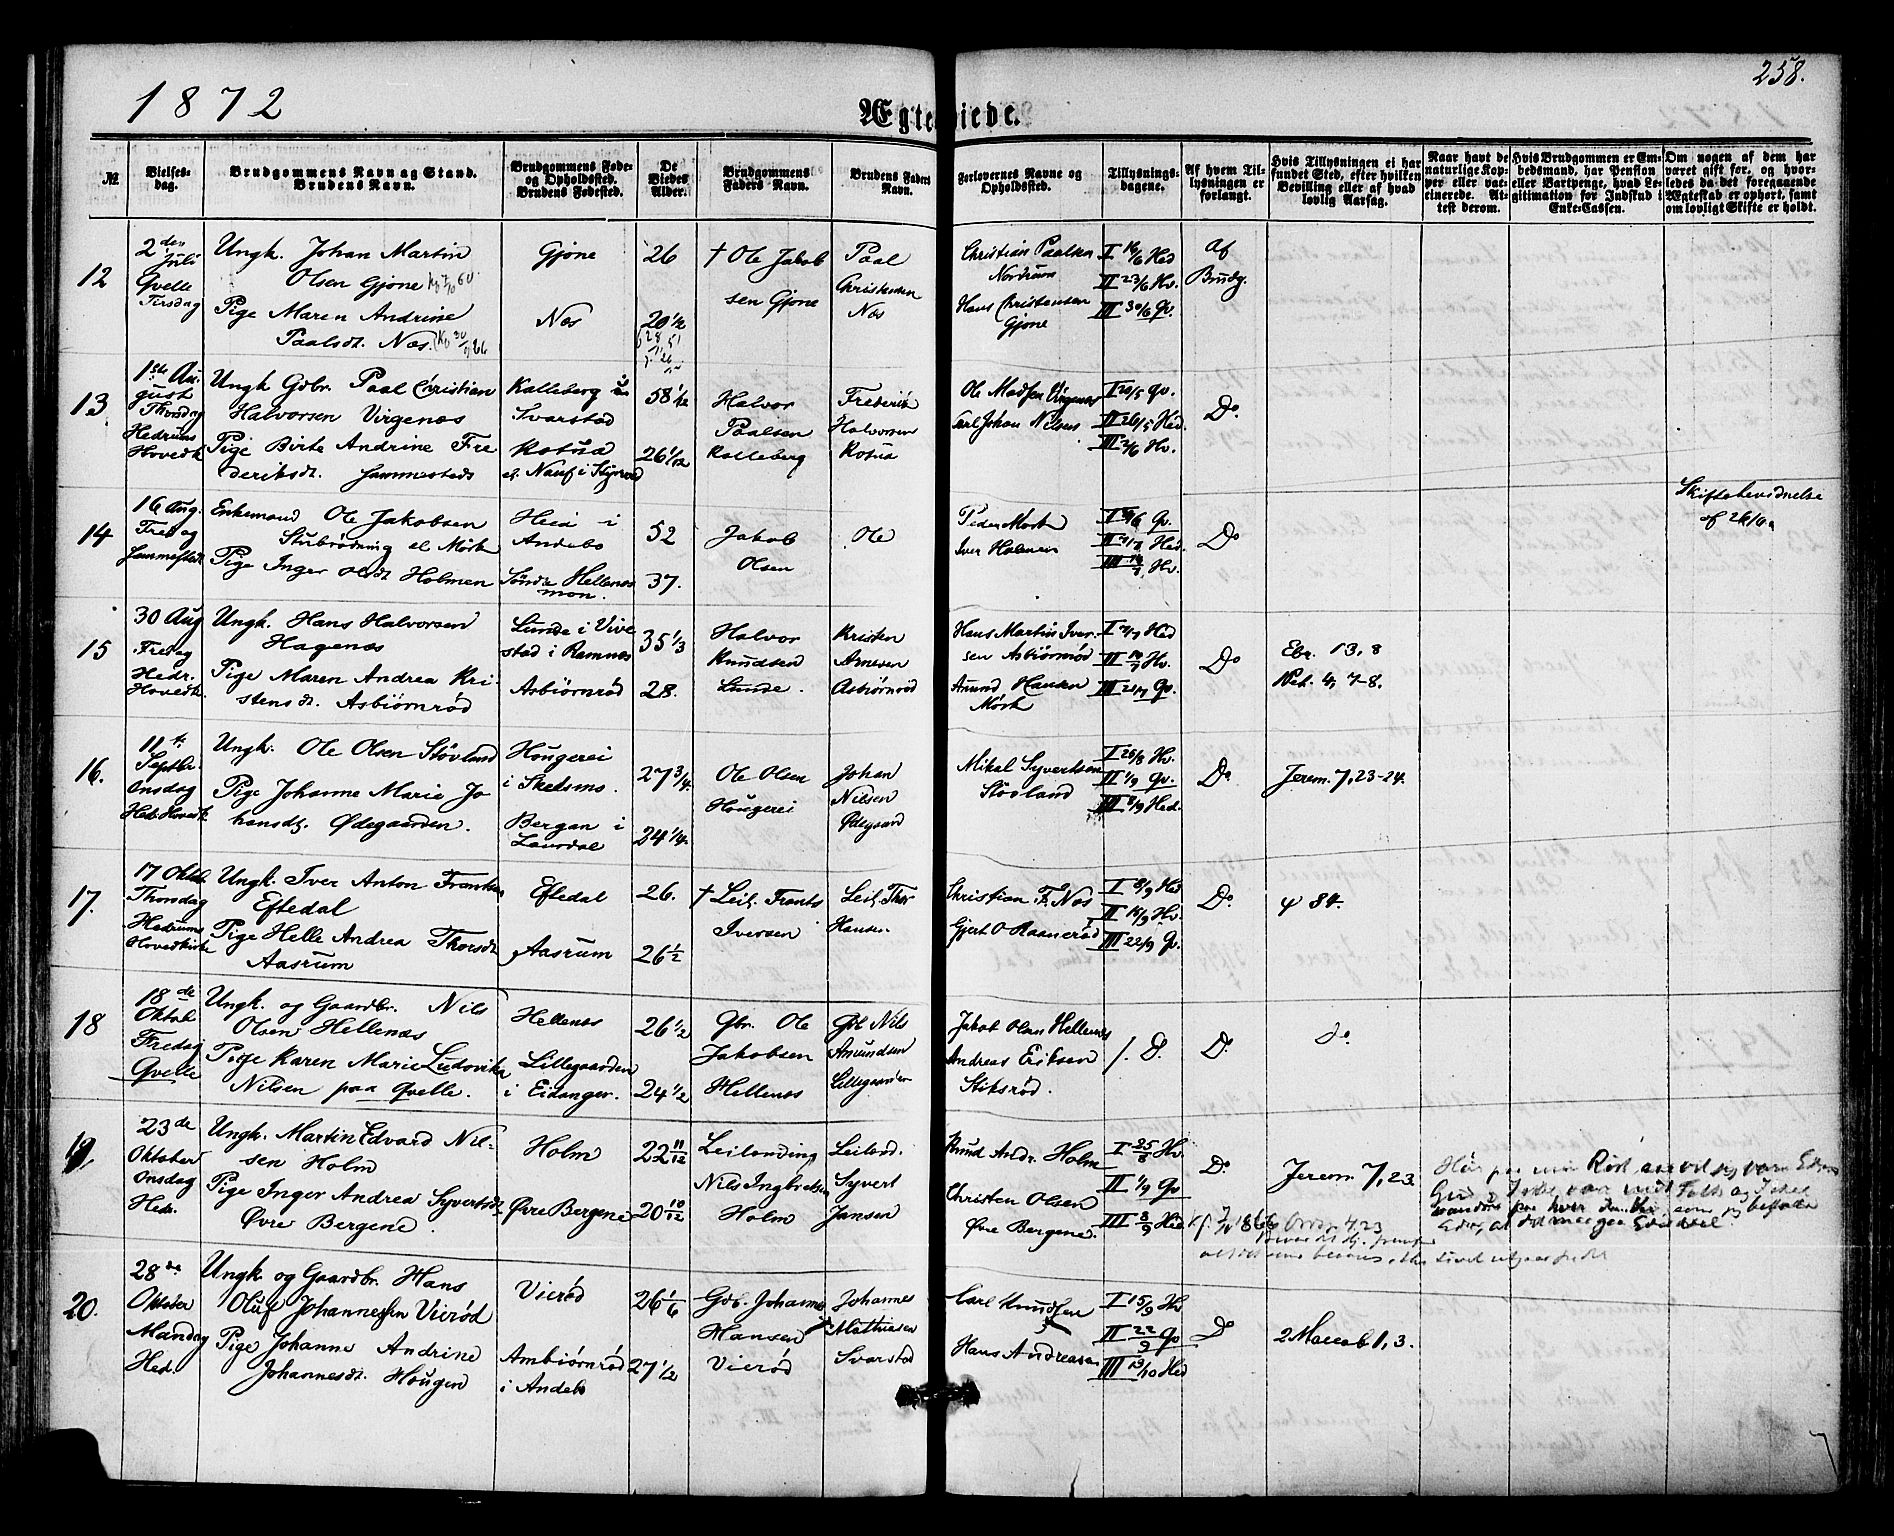 1872
Ægteviede.
258.
№
Vielses-
dag.
Brudgommens Navn og Stand.
Brudens Navn.
Brudgommens Føde-
og Opholdssted.
Brudens Fødested.
De
Viedes
Alder.
Brudgommens
Faders Navn.
Brudens Faders
Navn.
Forlovernes Navne og
Opholdssted.
Tillysnings-
dagene.
Af hvem Til-
lysningen er
forlangt.
Hvis Tillysningen ei har
fundet Sted, efter hvilken
Bevilling eller af hvad
lovlig Aarsag.
Naar havt de
naturlige Kop-
per eller vac-
cinerede. At-
test derom.
Hvis Brudgommen er Em-
bedsmand, har Pension
eller Vartpenge, hvad Le-
gitimation for Indskud i
Enke-Cassen.
Om nogen af dem har
været gift før, og hvor-
ledes da det foregaaende
Ægteskab er ophørt, samt
om lovligt Skifte er holdt.
12
2den
Juli
Qvelle
Tirsdag
Ungk. Johan Martin
Olsen Gjone
Pige Maren Andrine
Paalsdt. Næs.
Gjone
Næs
26
20 1/2
† Ole Jakob
sen Gjone
Paal
Christensen
Næs
Christian Paalsen
Nordrum
Hans Christensen
Gjone
I 16/6 Hed
II 23/6 Hv.
III 30/6 Qv.
Af
Brudg.
13
1ste Au-
gust
Thorsdag
Hedrums
Hovedk
Ungk Gdbr. Paal Christian
Halvorsen Virgenæs
Pige Birte Andrine Fre
deriksdt. Jammestads
Kalleberg i
Svarstad
Rotua
58 1/2
26 1/12
Halvor
Paalsen
Kalleberg
Frederik
Halvorsen
Rotua
Ole Madsen Virgenæs
Carl Johan Nilsens
I 20/5 Qv.
II 26/5 Hed.
III 2/6 Hv.
Do.
14
16 Aug.
Fredag
Enkemand Ole Jakobsen
Stubrødning el Mørk
Pige Inger Olsdt Holmen
Heia i
Andebo
Søndre Hellenæs
mon.
52
37.
Jakob
Olsen
Ole
Peder Mørk
Iver Holmen
Do
Skiftebevidnelse
15
30 Aug
Fredag
Hedr.
Hovedk.
Ungk. Hans Halvorsen
Hagenæs
Pige Maren Andrea Kri-
stensdt. Asbiørnrød
Lunde i Vive
stad i Ramnæs
Asbiørnrød
35 1/3
28.
Halvor
Knudsen
Lunde.
Kristen
Arnesen
Asbiørnrød
Hans Martin Iver-
sen Asbiørnrød
Anund Hansen
Mørk
Do
Ebr. 13, 8
16.
11te
Septbr.
Onsdag
Hed. Hovedk.
Ungk. Ole Olsen Støvland
Pige Johanne Marie Jo
hansdt. Ødegaarden.
Hougerei
i Skedsmo.
Bergan i
Laurdal
27 3/4.
24 1/4.
Ole Olsen
Hougerei
Johan
Nilsen
Ødegaard
Mikal Syvertsen
Støvland
I 25/8 Hv.
II 1/9 Qv.
III 8/9 Hed.
Do
Jerem. 7, 23-24.
17.
17 Oktob.
Thorsdag
Hedrums
Hovedkirke
Ungk. Iver Anton Frantsen
Eftedal
Pige Helle Andrea Thorsdt
Aasrum
Eftedal
Aasrum
26.
26 1/2
† Leil. Frants
Iversen
Leil. Thor
Hansen
Christian F. Næs
Gjert O Raanerød
I 8/9 Hed
II 15/9 Hv.
III 22/9 Q.
Do.
ψ 84.
18
18de
Oktob
Fredag
Qvelle
Ungk. og Gaardbr. Nils
Olsen Hellenæs
Pige Karen Marie Ludovika
Nilsen paa Qvelle.
Hellenæs
Lillegaarden
i Eidanger.
26 1/2
24 1/2
Gbr. Ole
Jakobsen
Hellenæs
Gbr Nils
Amundsen
Lillegaarden
Jakob Olsen Hellenæs
Andreas Eriksen
Stiksrød.
Do
Do.
do.
19.
23de
Oktober
Onsdag
Hedr.
Ungk. Martin Edvard Nil-
sen Holm
Pige Inger Andrea Syvertsdt.
Øvre Bergene.
Holm
Øvre Bergene
22 11/12
20 10/12
Leilænding
Nils Ingbretsen
Holm
Leilænd.
Syvert
Jansen
Knud Andr. Holm
Christen Olsen
Øvre Bergene.
I 25/8 Hv.
II 1/9 Qv
III 8/9 Hed
Do
Jerem. 7, 23.
20.
28de
Oktober
Mandag
Hed.
Ungk og Gaardbr. Hans
Oluf Johannessen Vierød
Pige Johanne Andrine
Johannesdt. Hougen
Vierød
Ambiørnrød
i Andebo
26 1/6
27 1/2
Gdb. Johannes
Hansen
Vierød
Johannes
Mathiasen
Svarstad
Carl Knudsen
Hans Andreasen
I 15/9 Hv
II 22/9 Qv
III 13/10 Hed
Do
2 Maccab 1, 3.